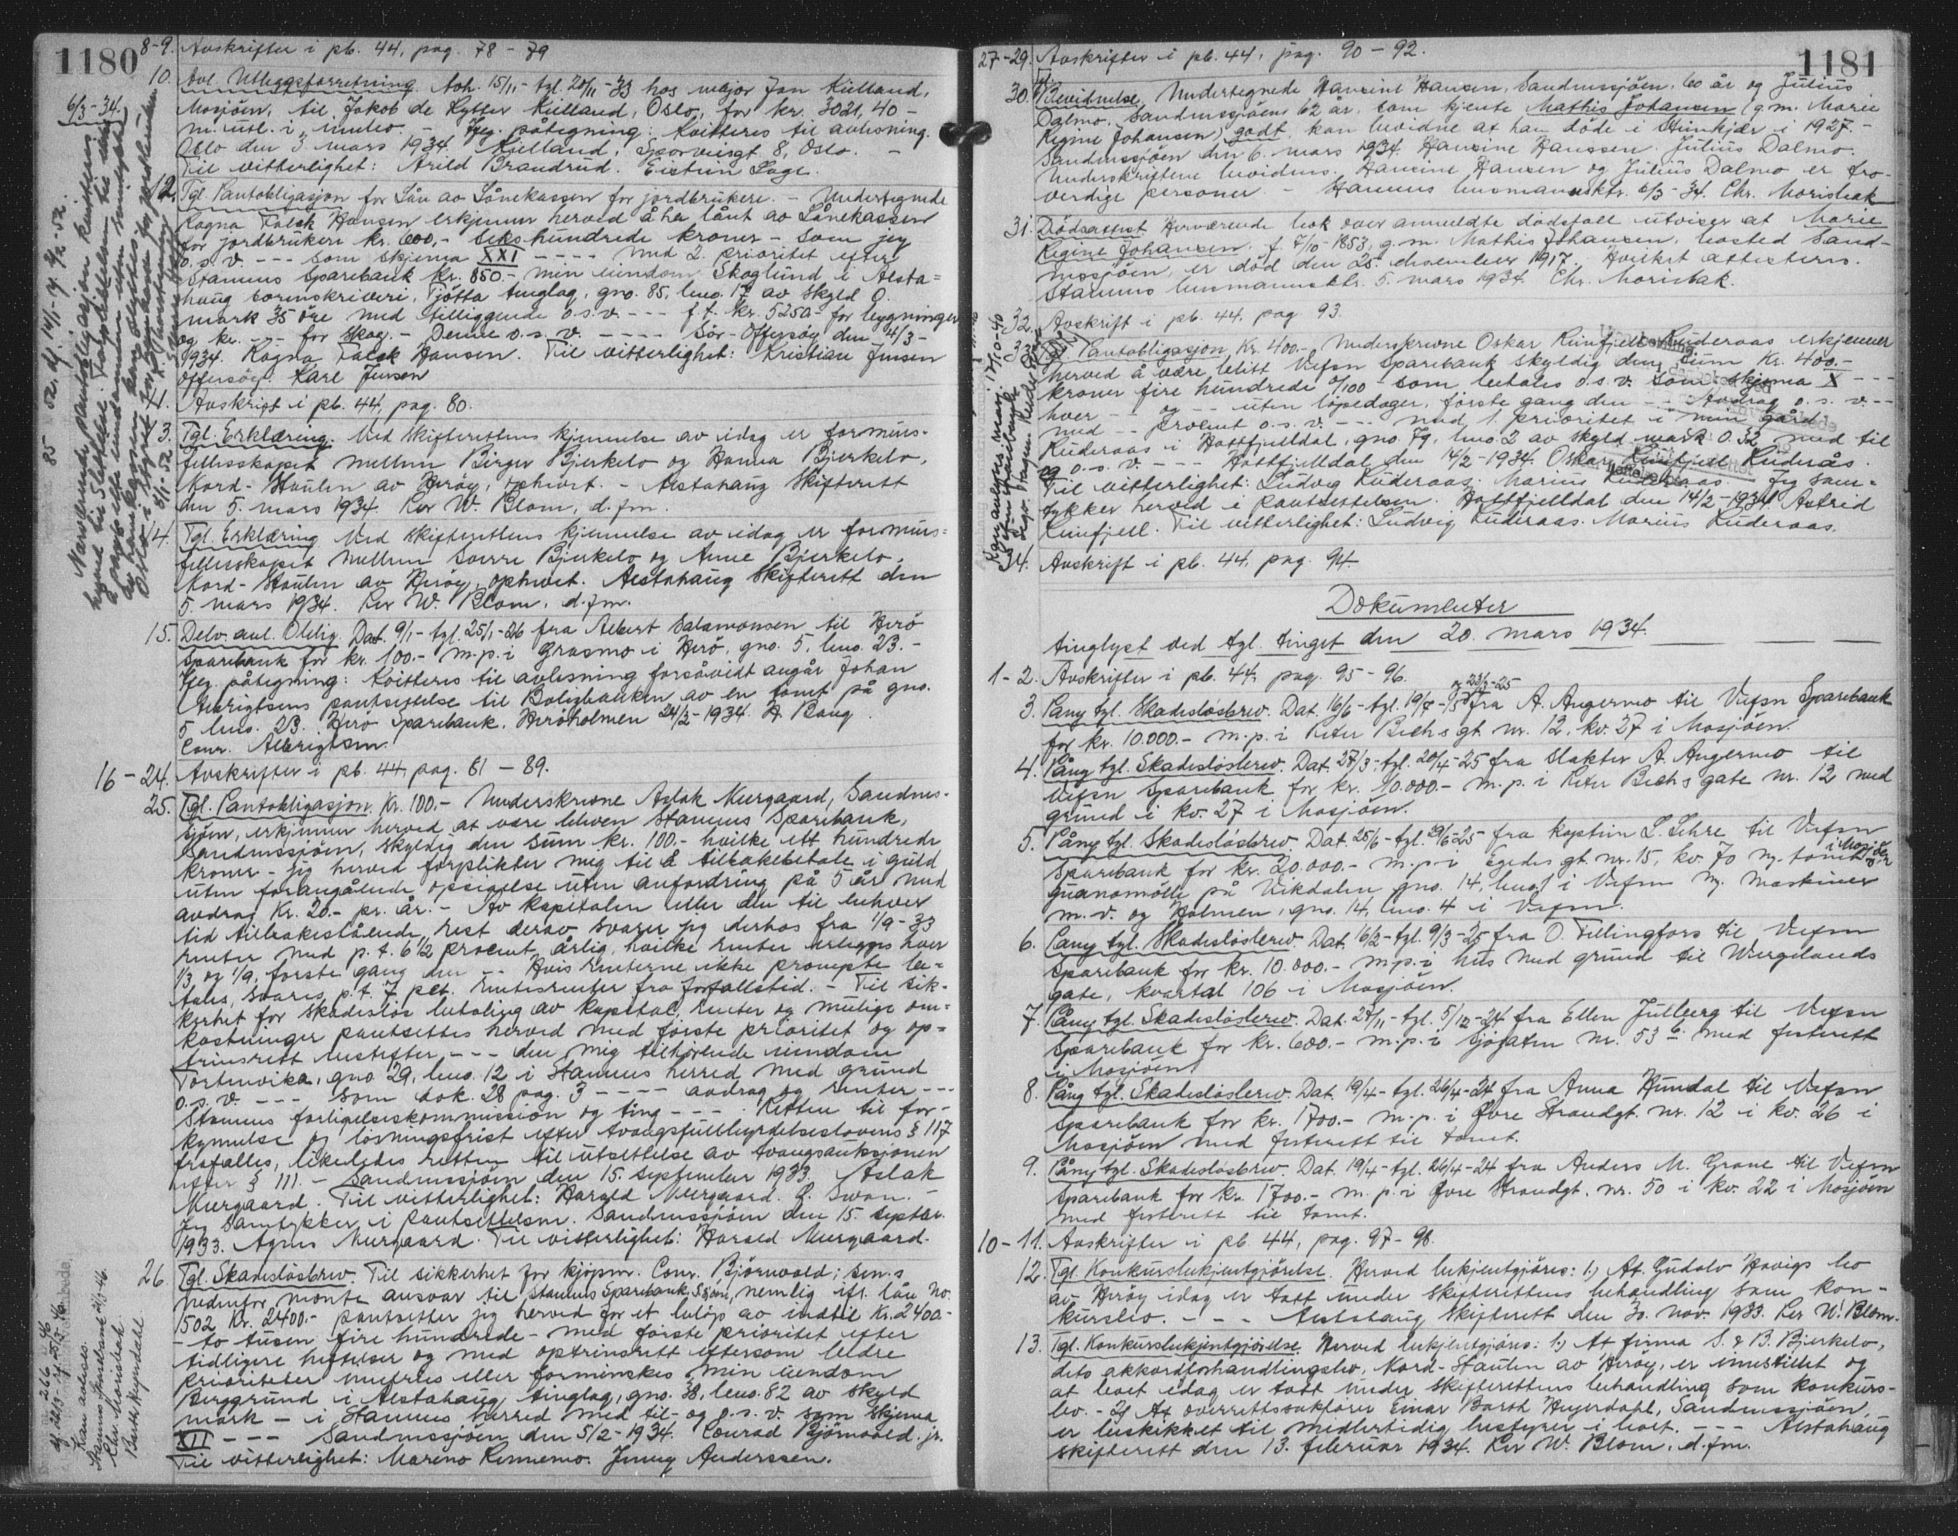 1180
8-9. Avskrifter i pb. 44, pag. 78 - 79
10. Avl. Utleggsforretning. Avh. 15/11 - tgl. 20/11 - 33 hos major Jan Kielland,
Mosjøen, til Jakob de Rytter Kielland, Oslo, for kr. 3021,40 -
m. utl. i innbo. - Jeg. påtegning: Kvitteres til avlesning.
Oslo den 3. mars 1934. Kielland, Sporveisgt. 8, Oslo. -
Til vitterlighet: Arild Brandrud.
6/3 - 34.
12. Tgl. Pantobligasjon for Lån av Lånekassen for jordbrukere. - Undertegnede
Ragna Falck Hansen erkjenner herved å ha lånt av Lånekassen
for jordbrukere kr. 600,- Seks hundrede kroner - som jeg
o.s.v. --- som skjema XXI ---- med 2. prioritet efter
Stamnes Sparebank kr. 850 - min eiendom Skoglund, i Alsta=
haug sorenskriveri, Tjøtta tinglag, gno. 85, bno. 17 av skyld 0.
mark 35 øre med tilliggende o.s.v. --- f.t. kr. 5250- for bygninger
og kr. -- for skog - Denne o.s.v. ---- Sør-Offersøy den 4/3 -
1934. Ragna Falck Hansen. Til vitterlighet: Kristian Jensen
Offersøy. Karl Jensen
Avskrift i pb. 44, pag. 80.
13. Tgl. Erklæring. Ved skifterettens kjennelse av idag er formues-
fellesskapet mellem Birger Bjerkelo og Hanna Bjerkelo,
Nord-Staulen av Herøy, ophevet. - Alstahaug Skifterett
den 5. mars 1934. Per W. Blom, d.fm.
14. Tgl. Erklæring Ved skifterettens kjennelse av idag er formues=
fellesskapet mellem Sverre Bjerkelo og Anne Bjerkelo,
Nord-Staulen av Herøy, ophevet. Alstahaug Skifterett den
5. mars 1934. Per W. Blom, d.fm.
15. Delv. avl. Oblig. Dat. 9/1 - tgl. 25/1 - 26 fra Albert Salamonsen til Herø
Sparebank for kr. 100.- m.p. i Grasmo i Herø, gno. 5, bno. 23. -
Jeg. påtegning: Kvitteres til avlesning forsåvidt angår Johan
Albrigtsens pantsettelse til Boligbanken av en tomt på gno.
5 bno. 23. Herø Sparebank. Herøholmen 24/2 - 1934. H. Baug
Conr. Albrigtsen.
16 - 24. Avskrifter i pb. 44, pag. 81 - 89.
25. Tgl. Pantobligasjon. Kr. 100.- Underskrevne Aslak Meergaard, Sandnes-
sjøen, erkjenner herved at være bleven Stamnes Sparebank,
Sandnessjøen, skyldig den sum kr. 100.- hvilke ett hundrede
kroner - jeg herved forplikter mig til å tilbakebetale i guld
uten forangående opsigelse uten anfordring på 5 år med
avdrag kr. 20.- pr. år. - Av kapitalen eller den til enhver
tid tilbakestående rest derav svarer jeg derhos fra 1/9 - 33
renter med p.t. 6 1/2 procent årlig, hvilke renter erlegges hver
1/3 og 1/9, første gang den -- Hvis renterne ikke prompte be=
tales, svares p.t. 7 pct. rentesrenter fra forfallstid. - Til sik-
kerhet for skadesløs betaling av kapital, renter og mulige om=
kostninger pantsettes herved med første prioritet og op=
trinsrett --- den mig tilhørende eiendom
Tortenvika, gno 29, bno. 12 i Stamnes herred med grund
o.s.v. --- som dok. 28 pag. 3 ---- avdrag og renter ---
Stamnes forlikelseskommission og ting --- Retten til for-
kynnelse og løsningsfrist efter tvangsfullbyrdelseslovens § 117
frafalles, likeledes retten til utsettelse av tvangsauksjonen
efter § 111. - Sandnessjøen den 15. september 1933. Aslak
Meergaard. Til vitterlighet: Harald Meergaard. Swan. -
Jeg samtykker i pantsettelsen. Sandnessjøen den 15. septbr.
1933. Agnes Meergaard. Til vitterlighet: Harald Meergaard.
26. Tgl. Skadesløsbrev. Til sikkerhet for kjøpm. Conr. Bjørnvold, sen.s
nedenfor monte ansvar til Stamnes Sparebank, Ssjøen, nemlig ifl. lån No.
1502 kr. 2400.- pantsetter jeg herved for et beløp av indtil kr. 2400.-
- to tusen fire hundrede - med første prioritet efter
tidligere heftelser og med optrinsrett eftersom beldre
prioriteter innfries eller forminskes, min eiendom
Berggrund i Alstahaug tinglag, gno. 38, bno. 82 av skyld
mark - i Stamnes herred med til- og o.s.v. som skjema
XII --- Sandnessjøen den 5/2 - 1934. Conrad Bjørnvold. jr.
Til vitterlighet: Mareno Rennemo. Jenny Anderssen.
Kan avlæses.
Stamnes Sparebank
Chr. Morisbak
Barth Heyerdahl
1181
27-29. Avskrifter i pb. 44, pag. 90 - 92.
30. Tgl. Bevidnelse. Undertegnede Hansine Hansen, Sandnessjøen, 60 år og Julius
Dalmo, Sandnessjøen 62 år. som kjente Mathis Johansen (g.m. Marie
Regine Johansen) godt kan bevidne at han døde i Steinkjær i 1927. -
Sandnessjøen den 6. mars 1934. Hansine Hanssen. Julius Dalmo.
Underskriftene bevidnes. Hansine Hansen og Julius Dalmo er tro-
verdige personer - Stamnes lensmannsktr. 6/3 - 34. Chr. Morisbak
31. Dødsattest Herværende bok over anmeldte dødsfall utviser at Marie
Regine Johansen, f. 7/10 - 1858, g.m. Mathis Johansen, bosted Sand-
nessjøen, er død den 25. desember 1917. Hvilket attesteres.
Stamnes lensmannsktr. 5. mars 1934. Chr. Morisbak.
32. Avskrift i pb. 44, pag 93.
33. Tgl. Pantobligasjon Kr. 400.-. Underskrevne Oskar Rinfjell Ruderaas erkjenner
herved å være blitt Vefsn Sparebank skyldig den sum Kr. 400.-
kroner fire hundrede 0/100 - som betales o.s.v. som skjema X ---
hver -- og -- uten løpedager, første gang den -- Avdrag o.s.v. --
med -- procent o.s.v. --- med 1 prioritet i min gård
Ruderaas i Hattfjelldal, gno. 79, bno. 2 av skyld mark 0.32 med til
og o.s.v. --- Hattfjelldal den 14/2 - 1934. Oskar Rinfjell Ruderås.
Til vitterlighet: Ludvig Ruderaas. Marius Ruderaas. Jeg sam=
tykker herved i pantsettelsen. Hattfjelldal den 14/2 - 1934. Astrid
Rinfjell. Til vitterlighet: Ludvig Ruderaas. Marius Ruderaas.
34. Avskrift i pb. 44, pag. 94
Dokumenter
tinglyst ved tgl. tinget den 20. mars 1934.
1-2. Avskrifter i pb. 44, pag. 95 - 96.
3. Pany tgl. Skadesløsbrev. Dat. 16/6 - tgl. 19/8 - 15 og 23/2 - 25 fra A. Angermo til Vefsn Sparebank
for kr. 10.000.- m.p. i Peter Bech's gt. nr. 12, kv. 27 i Mosjøen.
4. Pány tgl. Skadesløsbrev. Dat. 27/3 - tgl. 20/4 - 25 fra slakter A. Angermo til
Vefsn Sparebank for kr. 10.000.- m.p. i Peter Bechs gate nr. 12 med
grund i kv. 27 i Mosjøen.
5. Pány tgl. Skadesløsbrev. Dat. 25/6 - tgl. 29/6 - 25 fra kaptein L. Lehre til Vefsn
Sparebank for kr. 20.000.- m.p. i Egedes gt. nr. 15, kv. 70 og tomt i Mosjøen
guanomølle på Vikdalen gno. 14, bno. 1 i Vefsn og maskiner
m.v. og Holmen, gno. 14, bno. 4 i Vefsn.
6. Pany tgl. Skadesløsbrev. Dat. 16/2 - tgl. 9/3 - 25 fra O. Fellingfors til Vefsn
Sparebank for kr. 10.000.- m.p. i hus med grund til Wergelands
gate, kvartal 106 i Mosjøen.
7. Pany tgl. Skadesløsbrev. Dat. 27/11 - tgl. 5/12 - 24 fra Ellen Julberg til Vefsn
Sparebank for kr. 600.- m.p. i Sjøgaten nr. 53 b med festerett
i Mosjøen.
8. Pány tgl. Skadesløsbrev. Dat. 19/4 - tgl. 26/4 - 24 fra Anna Hundal til Vefsn
Sparebank for kr. 1700.- m.p. i Øvre Strandgt. nr. 12 i kv. 26 i
Mosjøen med festerett til tomt.
9. Pány tgl. Skadesløsbrev. Dat. 19/4 - tgl. 26/4 - 24 fra Anders M. Grane til Vefsn
Sparebank for kr. 1700.- m.p. i Øvre Strandgt. nr. 50 i kv. 22 i Mosjøen
med festerett til tomt.
10 - 11. Avskrifter i pb. 44, pag. 97 - 98.
12. Tgl. Konkursbekjentgjørelse. Herved bekjentgjøres: 1.) At Gudolv Hovigs bo
av Herøy idag er tatt under skifterettens behandling som kon-
kursbo. --- Alstahaug skifterett den 30. nov. 1933. Per W. Blom.
13. Tgl. Konkursbekjentgjørelse. Herved bekjentgjøres: 1.) At firma S. & B. Bjerkelo,
dets akkordforhandlingsbo, Nord-Staulen av Herøy, er innstillet og
at boet idag er tatt under skifterettens behandling som konkurs-
bo. - 2) At overrettssakfører Einar Barth Heyerdahl, Sandnessjøen
er beskikket til midlertidig bestyrer i boet. --- Alstahaug
skifterett den 13. februar 1934. Per W. Blom, d.fm.